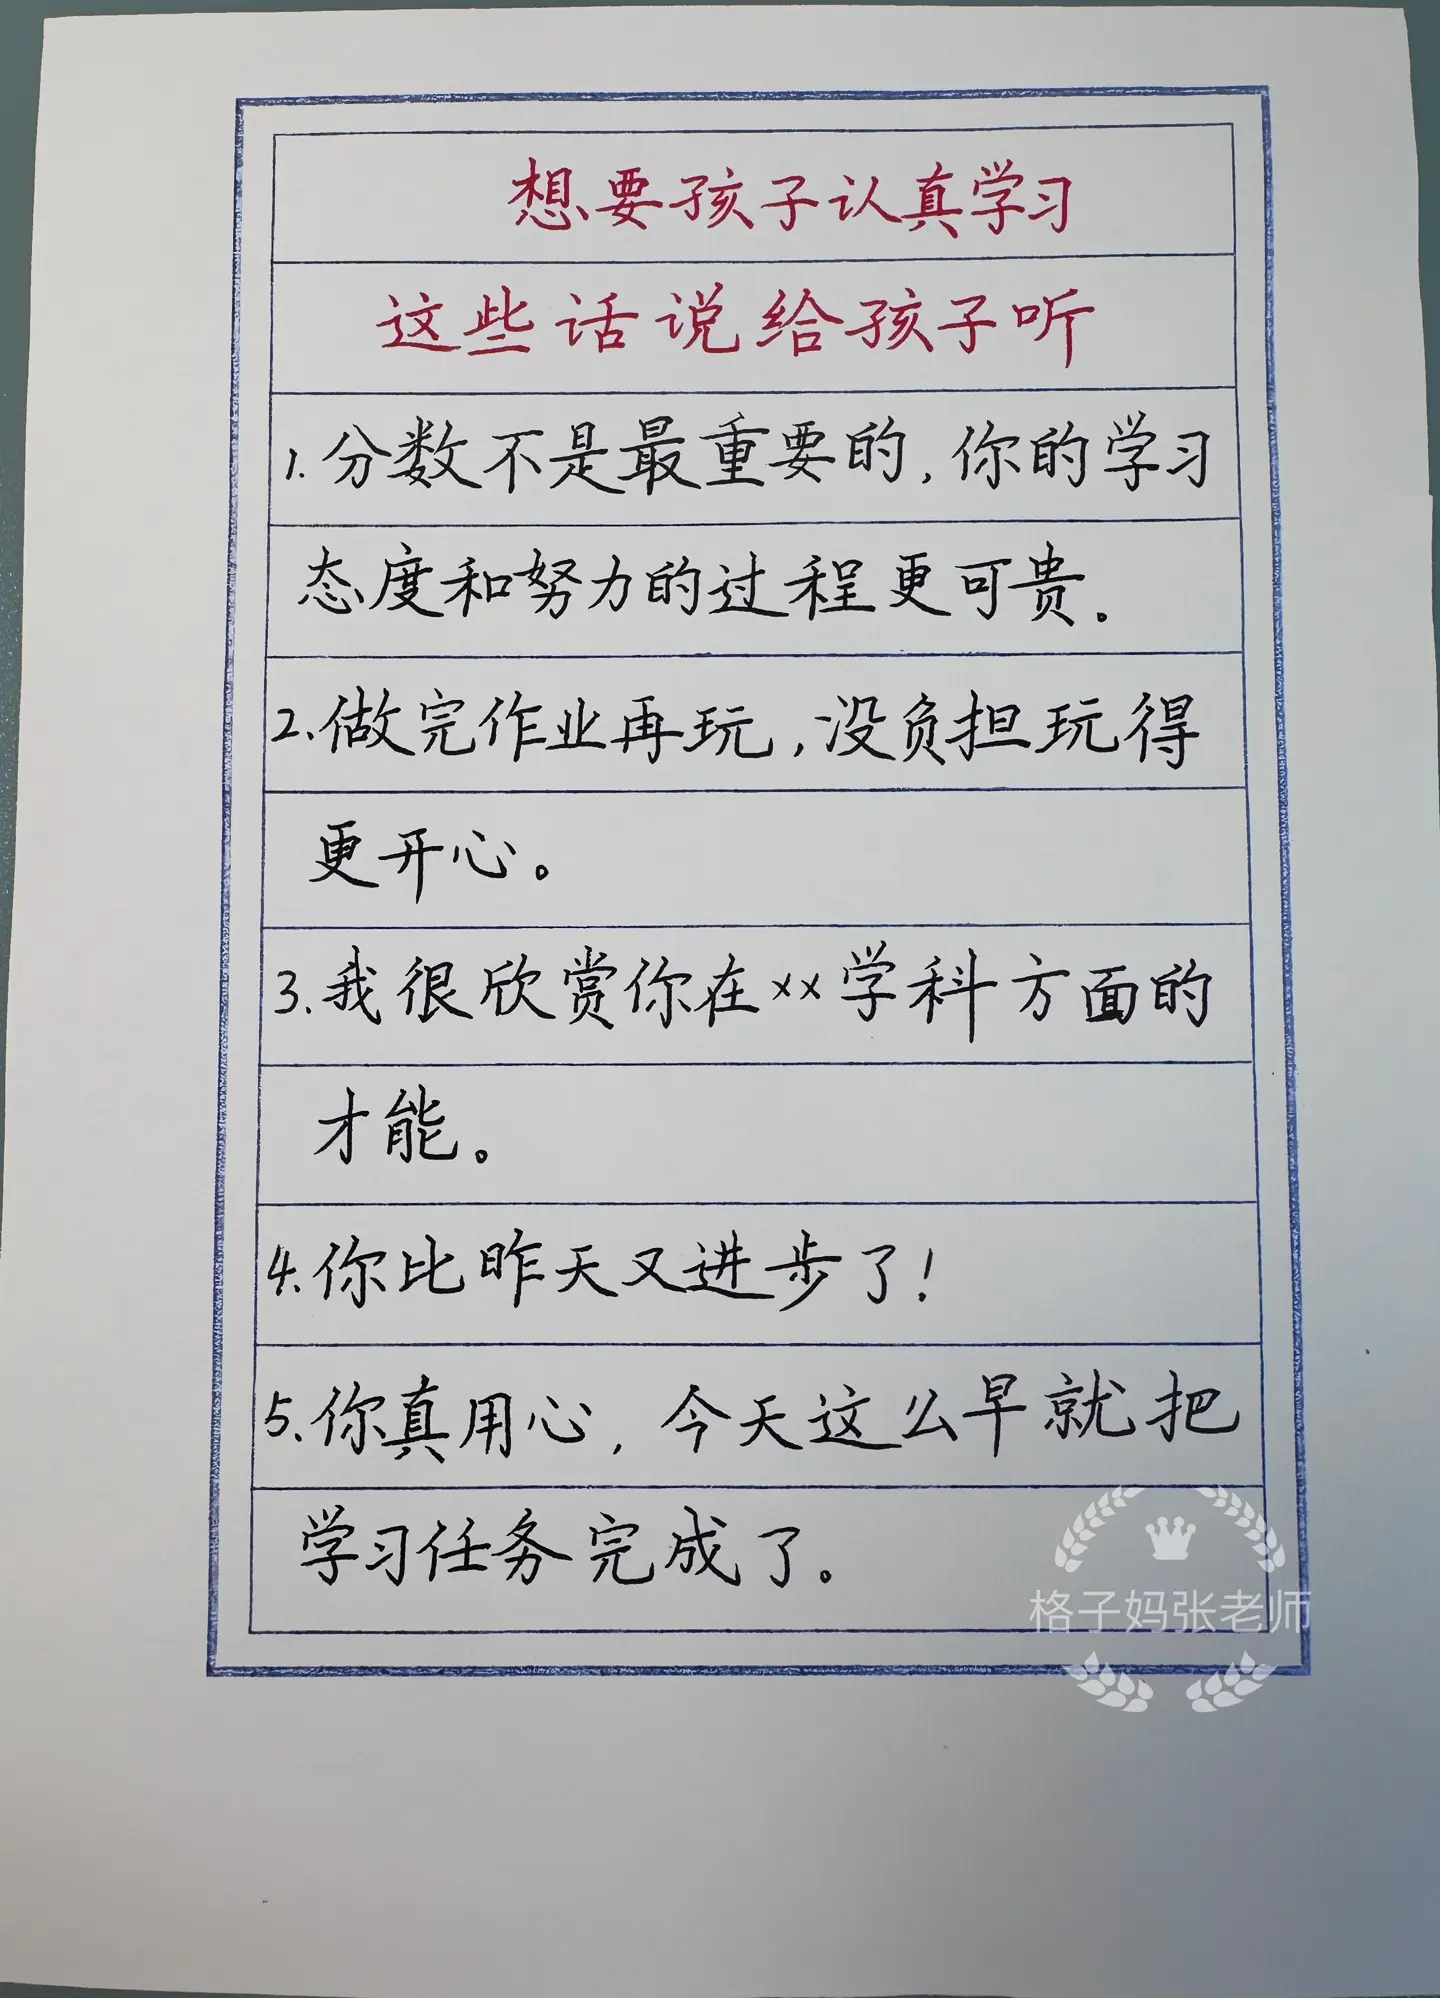 想要孩子认真学习
这些话说给孩子听
1.分数不是最重要的,你的学习
态度和努力的过程更可贵。
2.做完作业再玩,没负担玩得
更开心。
3.我很欣赏你在××学科方面的
才能。
4.你比昨天又进步了!
5.你真用心,今天这么早就把
学习任务完成了。
格子妈张老师